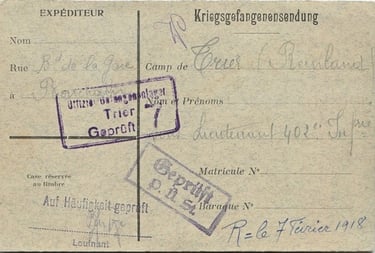 EXPÉDITEUR
Nom
Rue Bd de la Gare
à
Case réservée
au timbre
Kriegsgefangenensendung
Camp de Trier Rheinland
Nom et Prénoms
Lieutenant 402e Infrie
Matricule No
Baraque No
R = le 7 Février 1918
Offizier Gefangenenlager
Trier 7
Geprüft
Geprüft
P. U. St.
Auf Häufigkeit geprüft
Leutnant